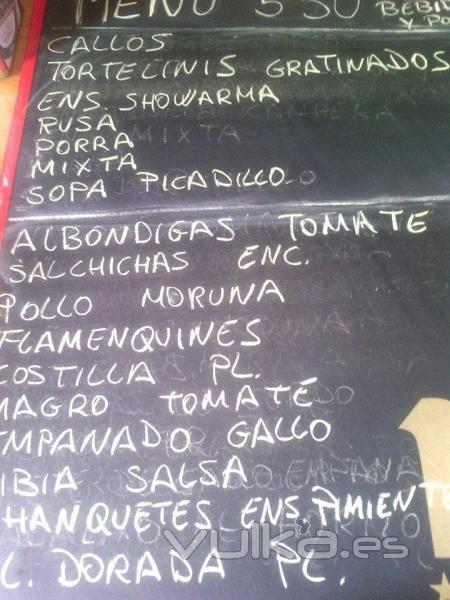 MENU 5'50 BEBID
Y PO
CALLOS
TORTELINIS GRATINADOS
ENS. SHOWARMA
RUSA
PORRA
MIXTA
SOPA PICADILLO
ALBONDIGAS TOMATE
SALCHICHAS ENC.
POLLO MORUNA
FLAMENQUINES
COSTILLA PL.
MAGRO TOMATE
MPANADO GALLO
IBIA SALSA
HANQUETES ENS. PIMIENTO
L. DORADA PL.
vulka.es